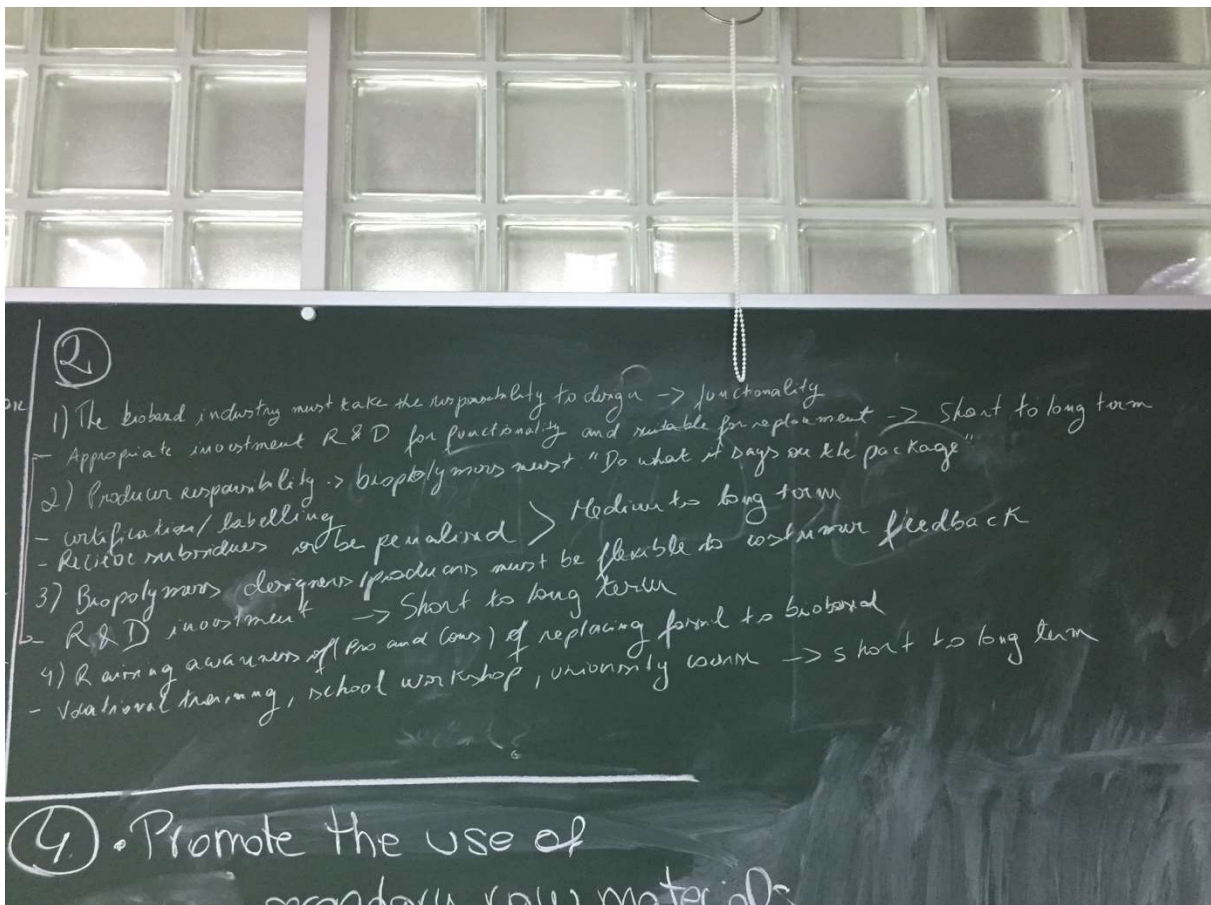 2
1) The biobased industry must take the responsability to design -> functionality
- Appropiate investment R&D for functionality and suitable for replacement -> Short to long term
2) Producer responsibility -> biopolymers must "Do what it says on the package"
- certification/labelling
- Recieve subsidues or be penalised > Medium to long term
3) Biopolymers designers/producers must be flexible to costumer feedback
- R&D investment -> Short to long term
4) Raising awareness of (Pro and Cons) of replacing fossil to biobased
- Vocational training, school workshop, university course -> short to long term
4. • Promote the use of
secondary raw materials